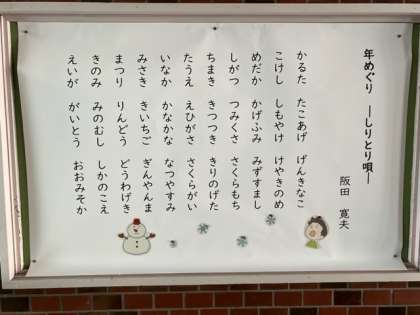 年めぐり ―しりとり唄―
阪田 寛夫
かるた たこあげ げんきなこ
こけし しもやけ けやきのめ
めだか かげふみ みずすまし
しがつ つみくさ さくらもち
ちまき きつつき きりのげた
たうえ えひがさ さくらがい
いなか かなかな なつやすみ
みさき きいちご ぎんやんま
まつり りんどう どうわげき
きのみ みのむし しかのこえ
えいが がいとう おおみそか